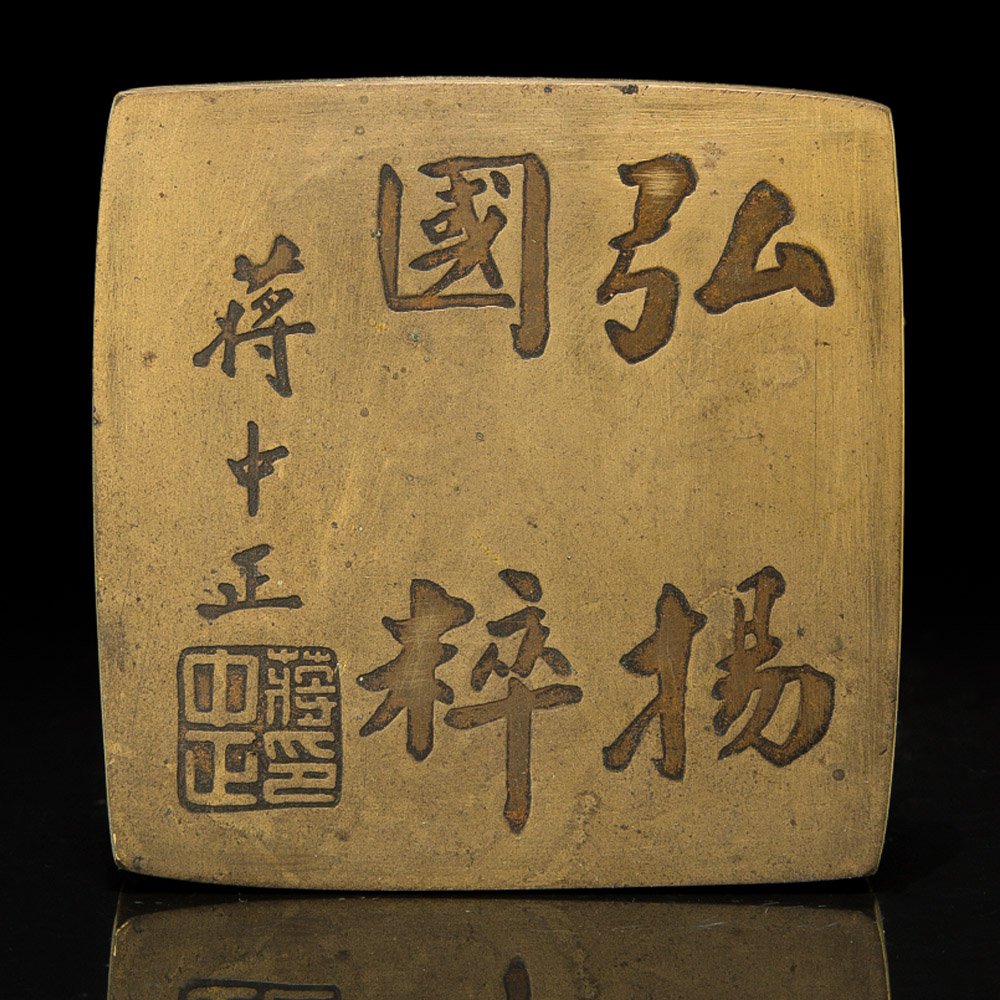 弘揚
國粹
蔣中正
蔣中正印